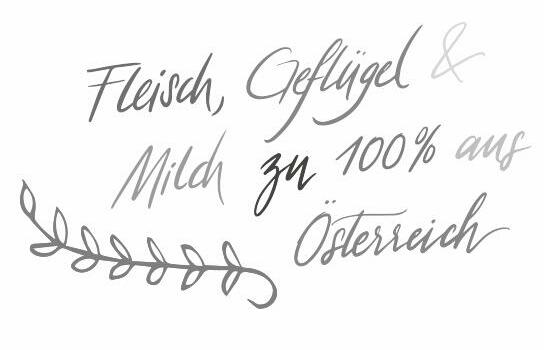 Fleisch, Geflügel &
Milch zu 100% aus
Österreich